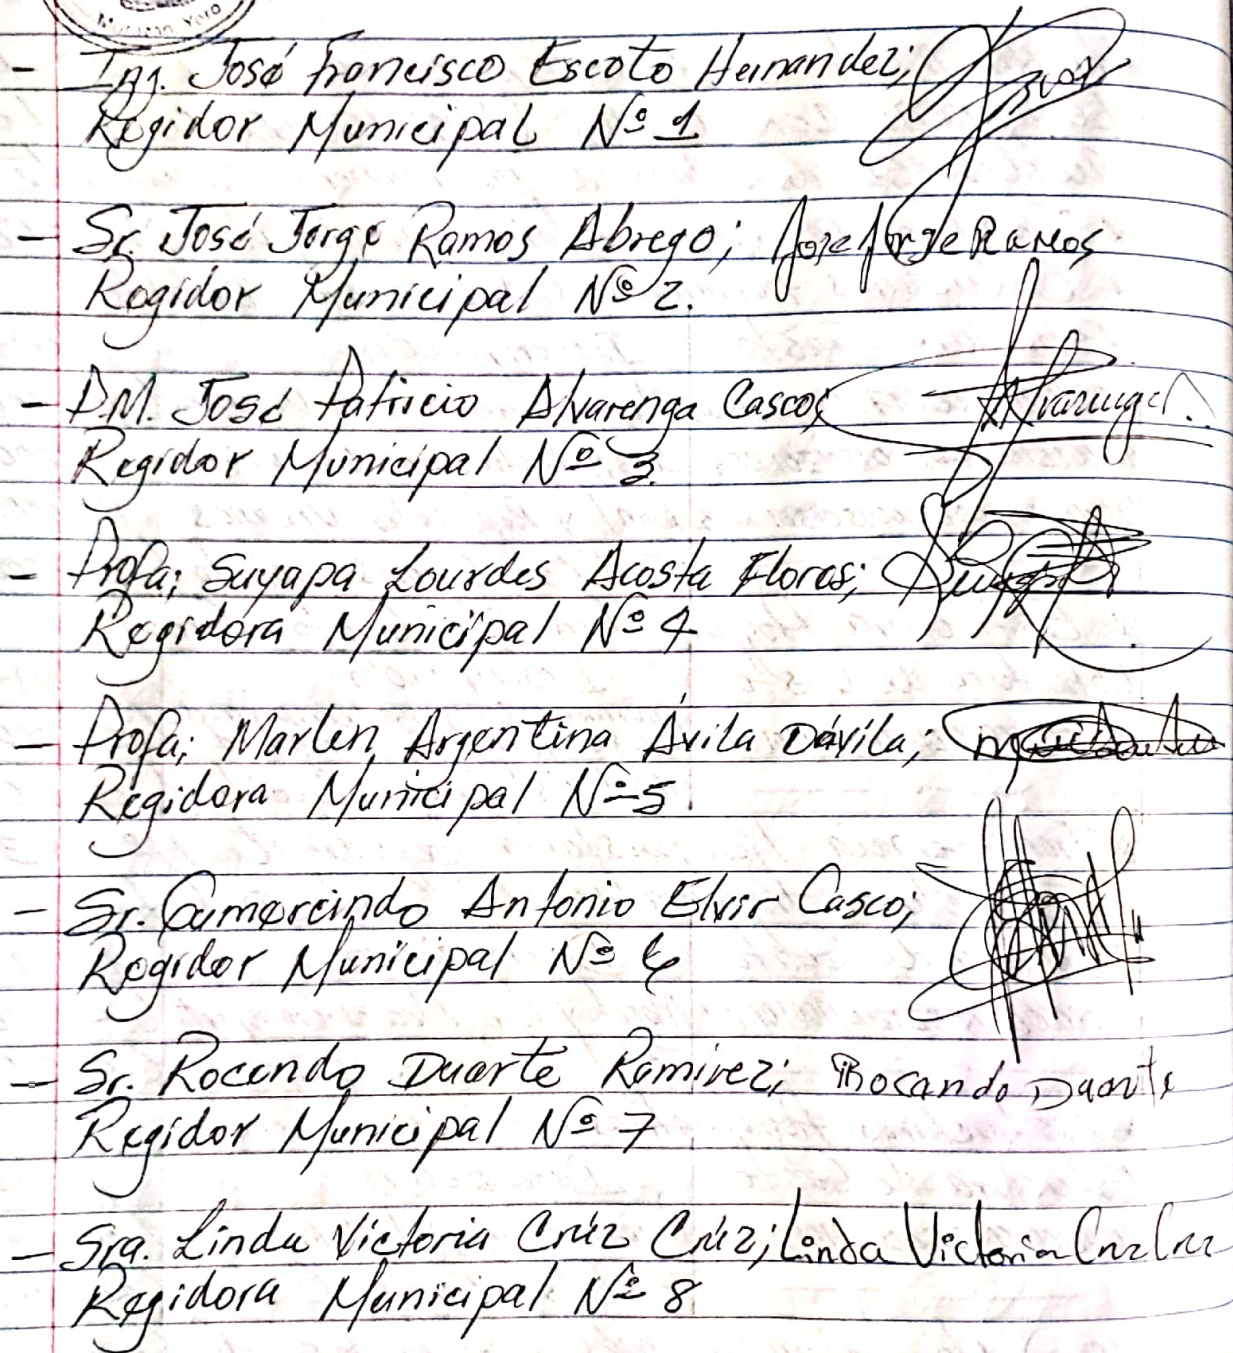 Morazán, Yoro
- Ing. José Francisco Escoto Hernandez;
Regidor Municipal Nº 1
- Sr. José Jorge Ramos Abrego; Jose Jorge Ramos
Regidor Municipal Nº 2.
- P.M. José Patricio Alvarenga Casco; Alvarenga
Regidor Municipal Nº 3.
- Profa; Suyapa Lourdes Acosta Flores;
Regidora Municipal Nº 4
- Profa; Marlen Argentina Ávila Dávila;
Regidora Municipal Nº 5.
- Sr. Gumercindo Antonio Elvir Casco;
Regidor Municipal Nº 6
- Sr. Rocendo Duarte Ramirez; Rosando Duarte
Regidor Municipal Nº 7
- Sra. Linda Victoria Crúz Crúz; Linda Victoria Cruz Cruz
Regidora Municipal Nº 8